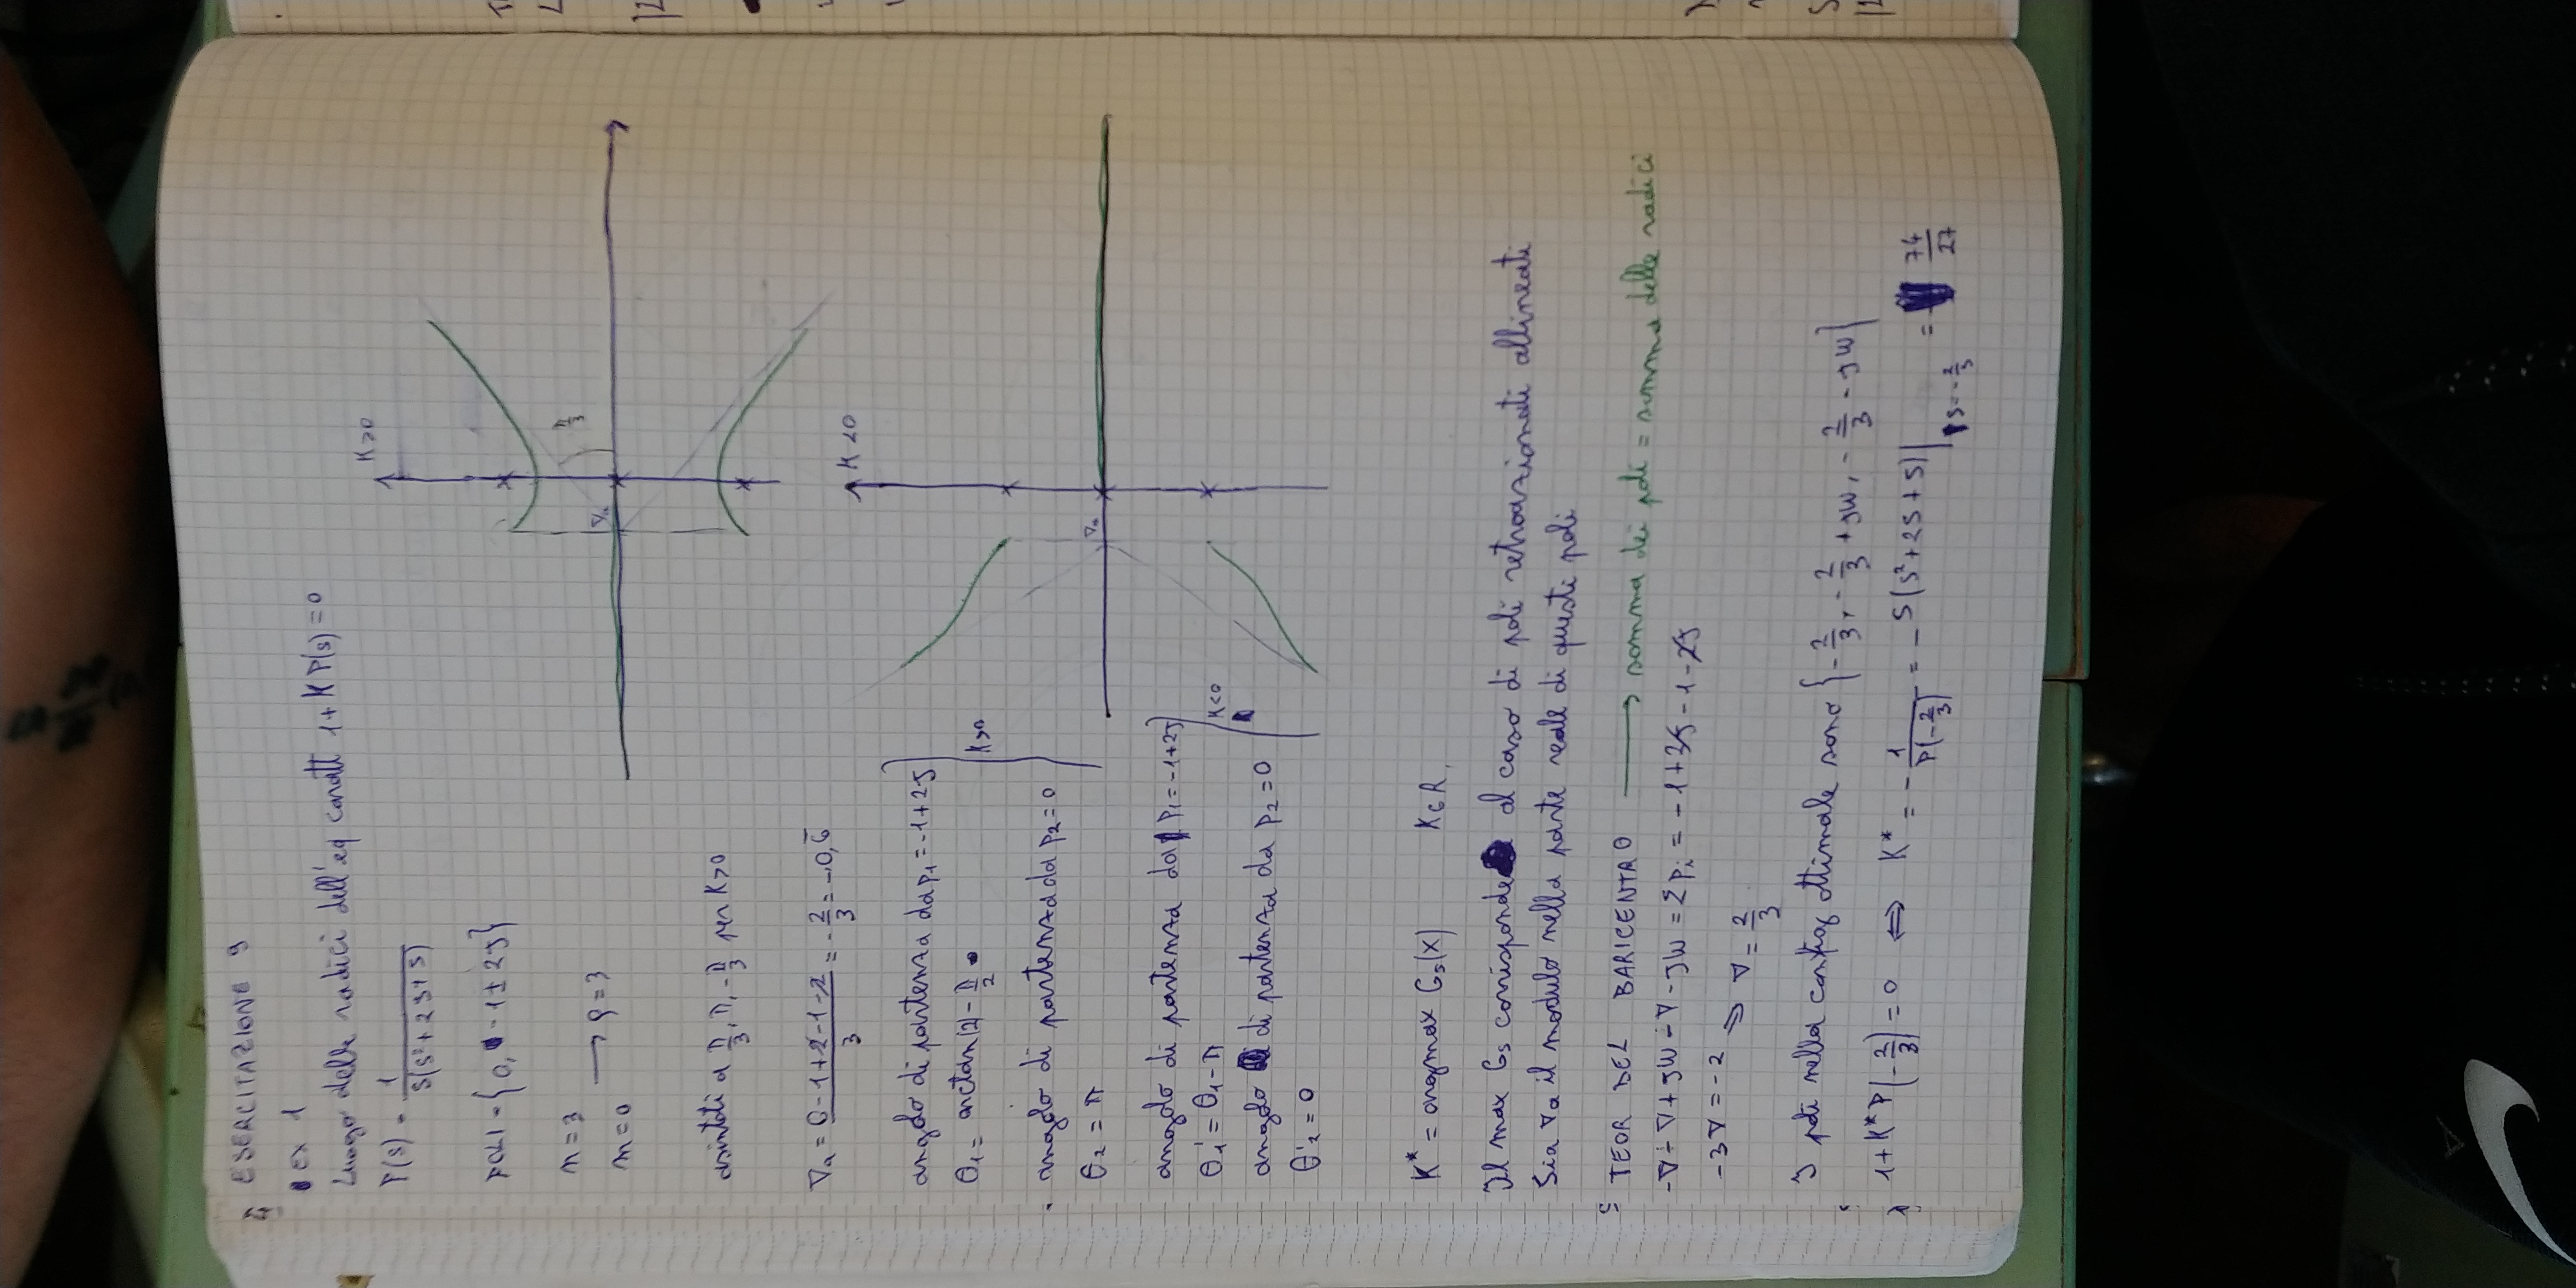 ESERCITAZIONE 9
ex 1
Luogo delle radici dell'eq caratt 1+KP(s)=0
P(s) = 1/(s(s²+2s+5))
POLI = {0, -1±2j}
n=3
m=0 → ρ=3
asintoti a π/3, π, -π/3 per K>0
σa = (0-1+2-1-2)/3 = -2/3 = -0,6̅
angolo di partenza da p₁=-1+2j
θ₁= arctan(2)-π/2
angolo di partenza da p₂=0
θ₂ = π
K>0
angolo di partenza da p₁=-1+2j
θ₁'=θ₁-π
angolo di partenza da p₂=0
θ'₂=0
K<0
K>0
π/3
σa
K<0
σa
K* = argmax Gs(K) K∈R
Il max Gs corrisponde al caso di poli retroazionati allineati
Sia σa il modulo nella parte reale di questi poli
TEOR DEL BARICENTRO → somma dei poli = somma delle radici
-σ-σ+jω-σ-jω = Σpᵢ = -1+2j-1-2j
-3σ=-2 ⇒ σ=2/3
I poli nella config ottimale sono {-2/3, -2/3+jω, -2/3-jω}
1+K*P(-2/3)=0 ⇔ K* = -1/P(-2/3) = -s(s²+2s+5)|s=-2/3 = 74/27